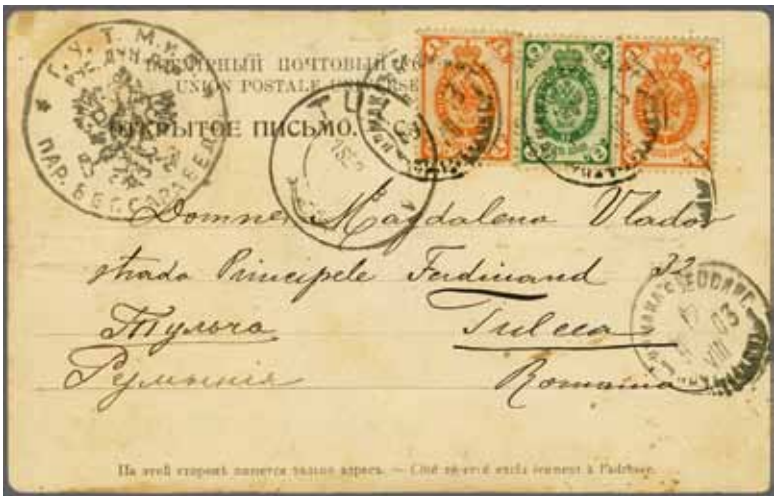 Г. У. Т. М. и П.
РУС. ДУН. ПАР.
ПАР. БЕССАРАБЕЦ
ВСЕМІРНЫЙ ПОЧТОВЫЙ
UNION POSTALE UNIVERSE
ОТКРЫТОЕ ПИСЬМО.
TU
Domnei Magdalena Vladov
strada Principele Ferdinand 32
Тульча Tulcea
Румынія Romania
На этой сторонѣ пишется только адресъ. — Côté réservé exclusivement à l'adresse.